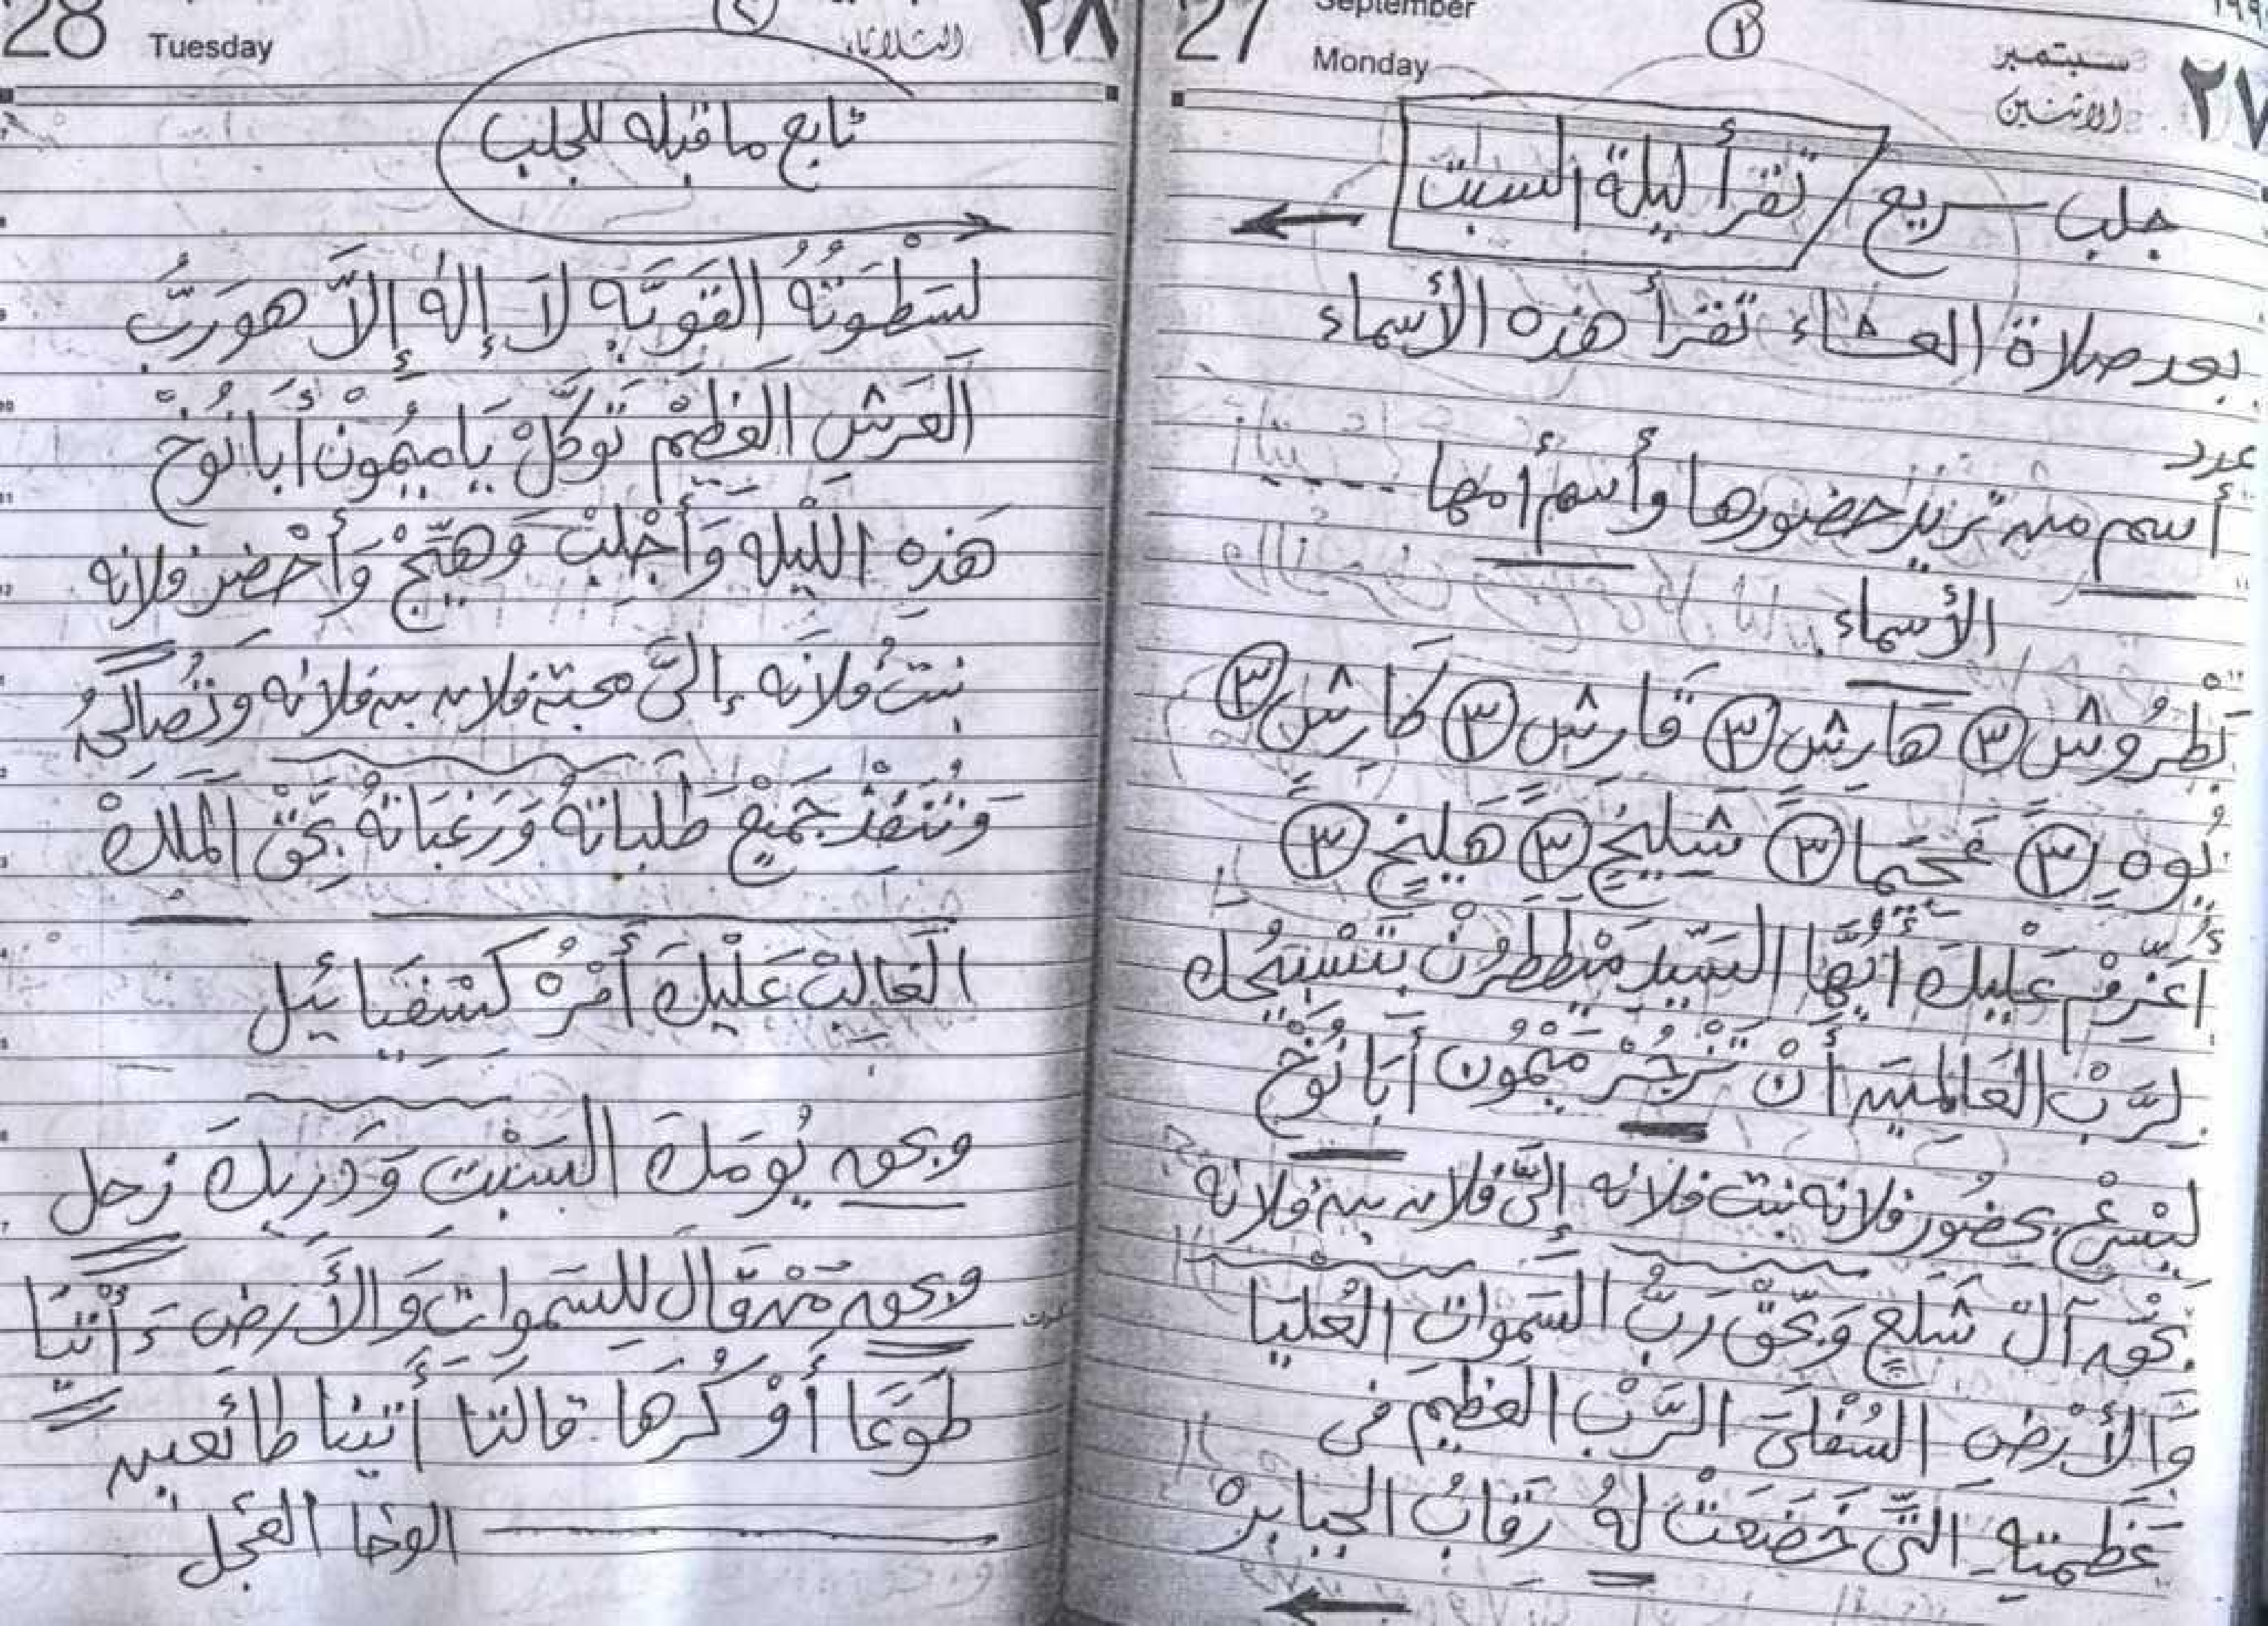 September
Monday
27
سبتمبر
الاثنين
٢٧
١
جلب سريع / تقرأ ليلة السبت
بعد صلاة العشاء تقرأ هذه الأسماء
عدد
أسم من تريد حضورها وأسم أمها
الأسماء
بَطْرُوش ٣ هَارِش ٣ قَارِش ٣ كَارِش ٣
يُوهٍ ٣ شَلِيخٍ ٣ هَلِيخٍ ٣
أعزم عَلَيْكَ أيُّهَا السَيِّد مَيْطَطَرُنْ بتَسْبِيحُك
لِرَبْ العَالَمِين أنْ تَزْجُرْ مَيْمُون أَبَا نُوخْ
ليَسْرِعْ بحضُور فلانه بنت فلانه إلىَّ فلان بن فلانه
بَحْق آلْ شَلعٍ وَبحَقْ رَبُّ السَمَوات العُليَا
وَالأَرْض السُفْلىَ الرَّبْ العَظِيمَ فى
عَظمتِهِ التَّى خَضَعَتْ لَهُ رَقَابُ الجبابره
28
Tuesday
الثلاثاء
٢٨
٢
تابع ما قبله للجلب
لسَطْوَتُهُ القَوَيَّه لاَ إلهَ إلاَّ هوَ رَبُّ
العَرَشْ العَظِيْم تَوَكَّلْ يَا مَيْمُونْ أَبَا نُوخْ
هَذِه اللَيْلهَ وَأَجْلِبْ وَهَيِّجْ وَأَحْضر فلانه
بنتُ فلاَنَه إلىَّ محبته فلان بن فلانه
وَتُنَفِذْ جَمَيْع طَلَبَاتهُ وَرَغبَاتهُ بحَقْ الَملِكْ
الغَالِبْ عَلَيْكَ أَمْرُهُ كَسْفَيَائيل
وبحق يُومَكَ السَبْت وَدَرَبكَ زحل
وبحق مَنْ قَالَ لِلسَموات وَالأَرَض أئتيَا
طَوَعَا أَوْ كُرَهَا قالتا أَتينا طائعين
الوحا العَجل